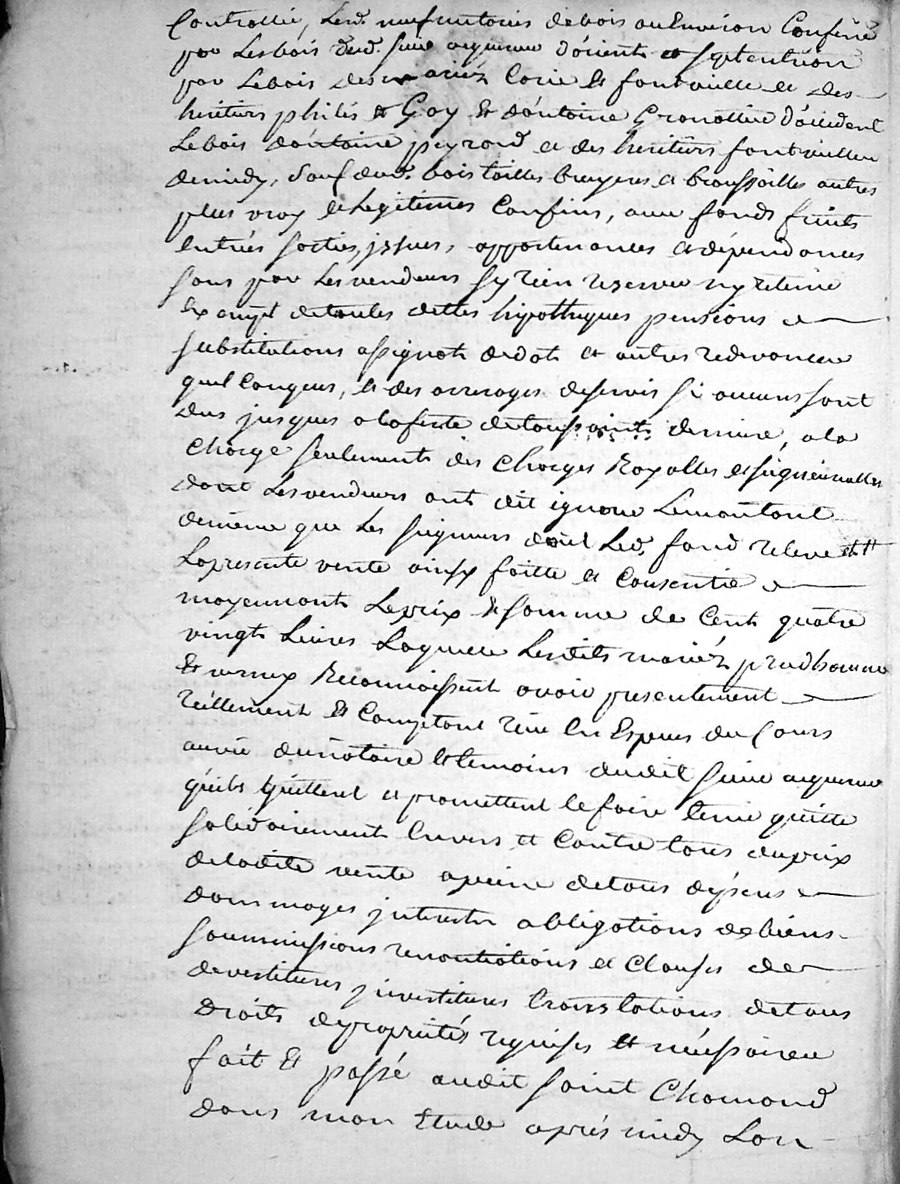 Controllé, Led. neuf metterées de bois ou Environ Confiné
par Les bois dud. Sieur d'orient et septentrion
par Le bois des mariéz Corie et fontvieille et des
héritiers philis & Goy & d'antoine Granottier d'occident
Le bois d'antoine peyrard et des héritiers fontvieille
de midy, Sauf dud. bois taillis bruyeres et broussailles autres
plus vray & Legitimes Confins, avec fonds fruits
entrées sorties, jssues, appartenances et dépendances
sans par Les vendeurs s'y rien reserver ny retenir
Exempt de toutes dettes hipotheques pensions et
substitutions assignats de dot et autres redevances
quelconques, & des arrerages d'iceux si aucuns sont
dus jusques a la feste de toussaints derniere, a la
Charge seulement des Charges Royalles et seigneurialles
dont Les vendeurs ont dit ignorer Le montant
de même que Les seigneurs dont Led. fond releve ett
La presente vente ainsy faitte et Consentie
moyennant Le prix & somme de Cent quatre
vingt Livres Laquelle Lesdits mariéz prudhomme
& Reconnoissent avoir presentement
réellement & Comptant reçu En Especes du Cours
au vu du notaire & temoins dudit Sieur
qu'ils quittent et promettent le faire tenir quitte
solidairement Envers et Contre tous du prix
de ladite vente a peine de tous depens
dommages jnterets obligations de biens
soummissions renontiations et Clauses de
devestitures jnvestitures translations de tous
droits de proprietés requises et nécessaires
fait & passé audit Saint Chamond
dans mon Etude aprés midy L'an